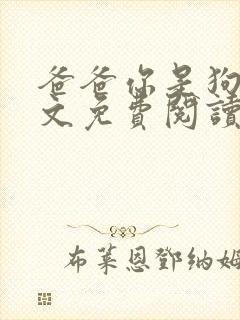 爸爸你是狗
文免費閱讀
布萊恩鄧納姆